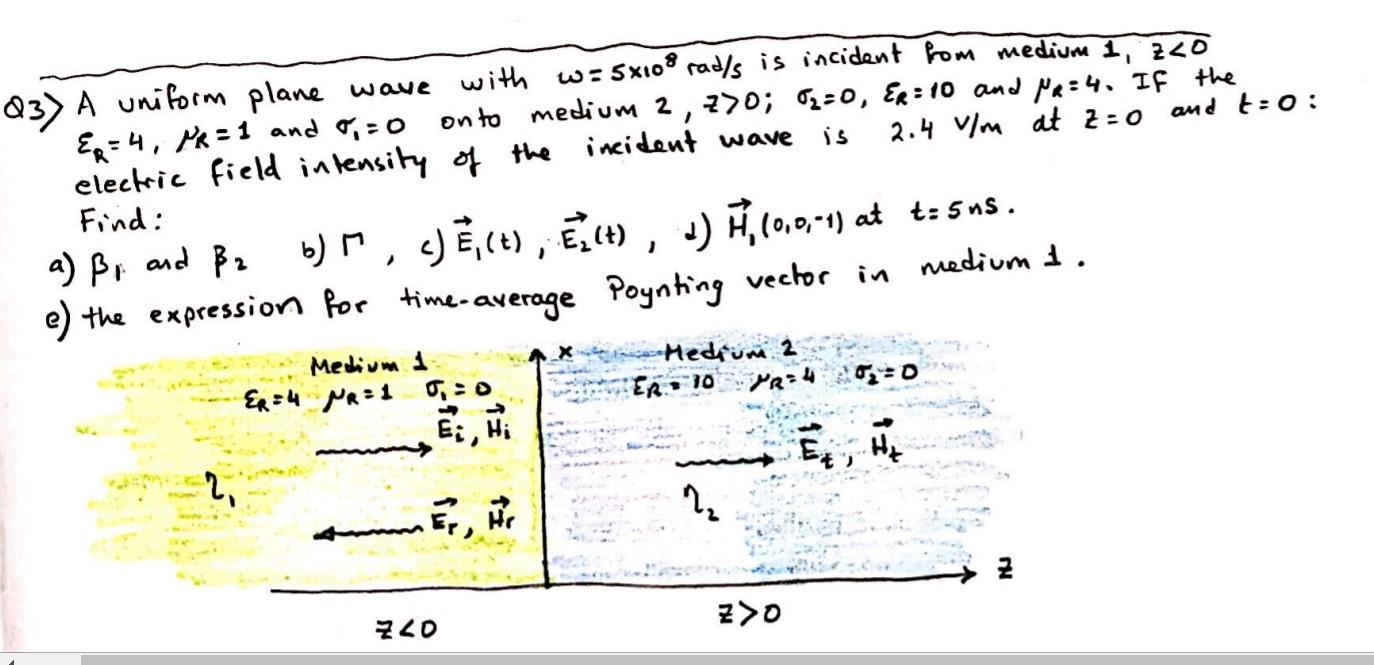 Q3) A uniform plane wave with ω = 5×10⁸ rad/s is incident from medium 1, z<0
εR=4, μR=1 and σ₁=0 onto medium 2, z>0; σ₂=0, εR=10 and μR=4. IF the
electric field intensity of the incident wave is 2.4 V/m at z=0 and t=0:
Find:
a) β₁ and β₂ b) Γ, c) E⃗₁(t), E⃗₂(t), d) H⃗₁(0,0,-1) at t=5ns.
e) the expression for time-average Poynting vector in medium 1.
Medium 1 x Medium 2
εR=4 μR=1 σ₁=0 εR=10 μR=4 σ₂=0
E⃗i, H⃗i
E⃗t, H⃗t
η₁ η₂
E⃗r, H⃗r
z
z<0 z>0